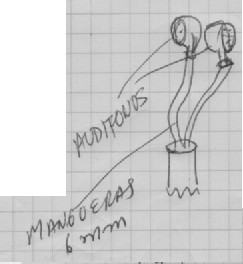 AUDIFONOS
MANGUERAS
6 mm